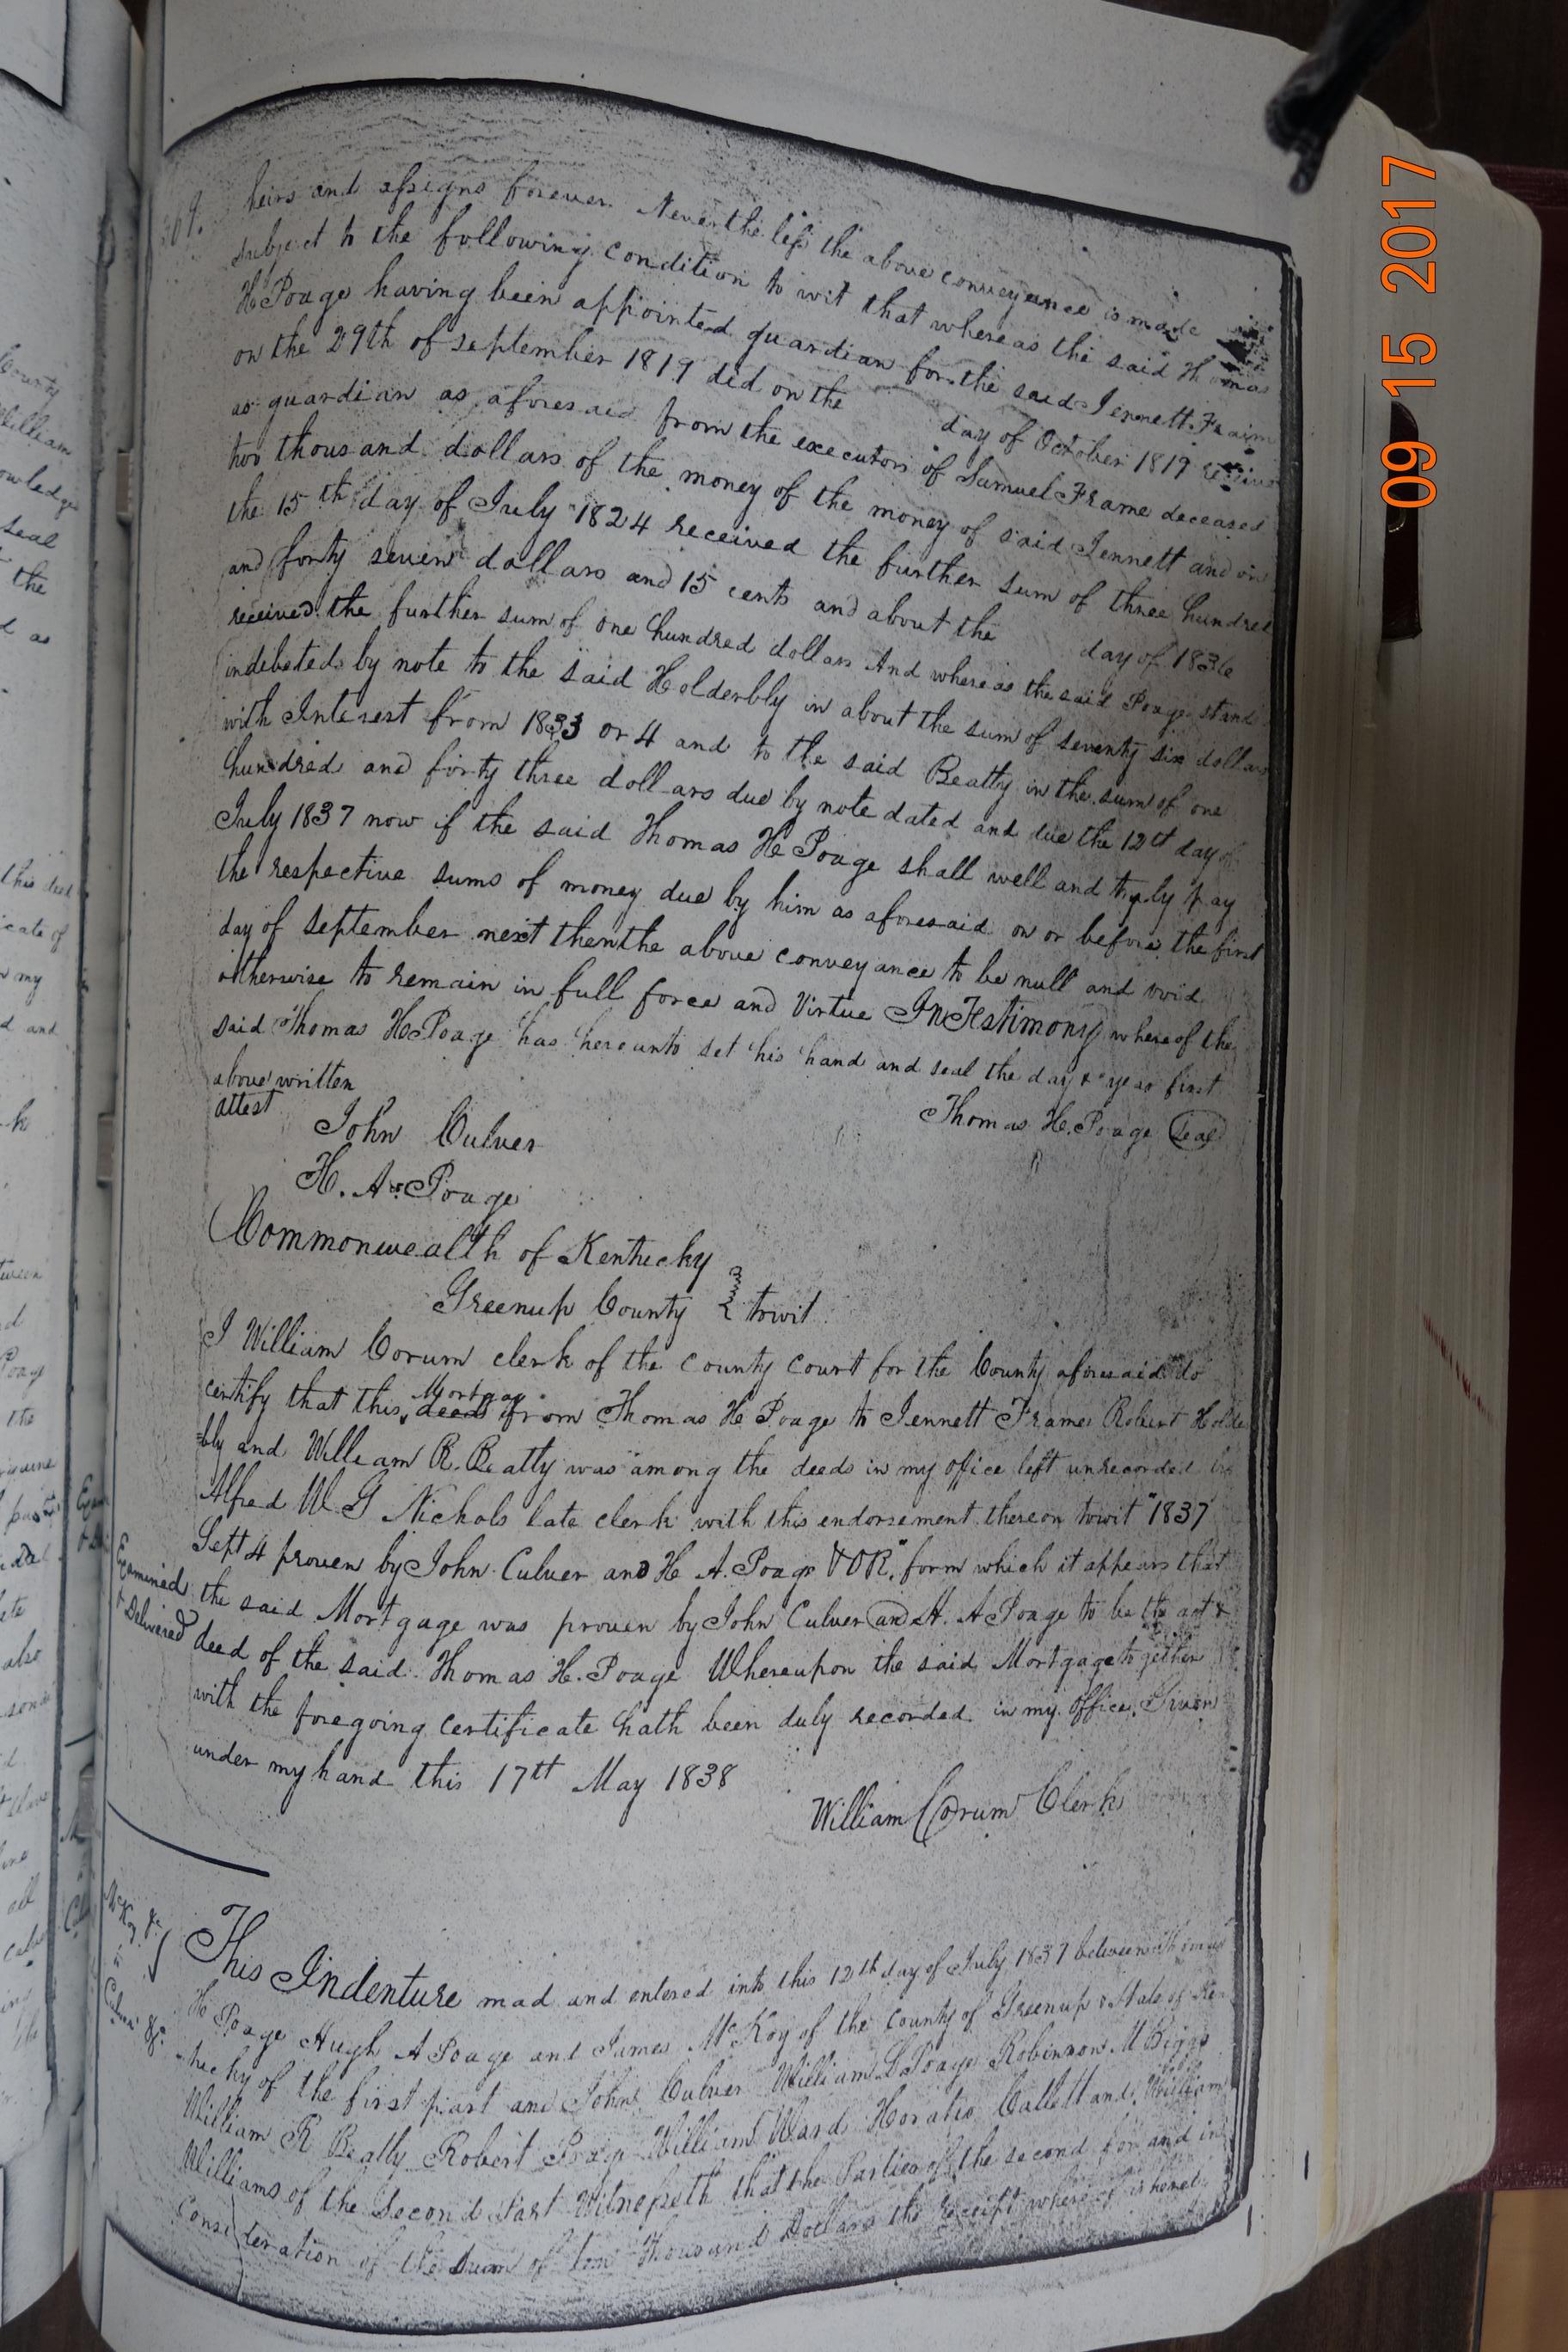 heirs and assigns forever. Nevertheless the above conveyance is made
subject to the following condition to wit that whereas the said Thomas
H Poage having been appointed guardian for the said Jennett Fraim
on the 29th of september 1819 did on the day of October 1819 receive
as guardian as aforesaid from the executors of Samuel Frame deceased
two thousand dollars of the money of the money of said Jennett and on
the 15th day of July 1824 received the further sum of three hundred
and forty seven dollars and 15 cents and about the day of 1836
received the further sum of one hundred dollars And whereas the said Poage stands
indebted by note to the said Holderbly in about the sum of seventy six dollars
with Interest from 1833 or 4 and to the said Beatty in the sum of one
hundred and forty three dollars due by note dated and due the 12th day of
July 1837 now if the said Thomas H Poage shall well and truly pay
the respective sums of money due by him as aforesaid on or before the first
day of september next then the above conveyance to be null and void
otherwise to remain in full force and Virtue In Testimony whereof the
said Thomas H Poage has hereunto set his hand and seal the day & year first
above written
Thomas H. Poage Seal
attest
John Culver
H. A. Poage
Commonwealth of Kentucky
Greenup County } towit
I William Corum clerk of the county court for the County aforesaid do
certify that this Mortgage from Thomas H Poage to Jennett Frame Robert Holde
=bly and William R. Beatty was among the deeds in my office left unrecorded by
Alfred W G Nichols late clerk with this endorsement thereon towit "1837
Sept 4 proven by John Culver and H A. Poage & OR." form which it appears that
Examined & Delivered
the said Mortgage was proven by John Culver and H. A Poage to be the act &
deed of the said Thomas H. Poage Whereupon the said Mortgage together
with the foregoing certificate hath been duly recorded in my office. Given
under my hand this 17th May 1838
William Corum Clerk
McKoy &c
to
Culver &c
This Indenture mad and entered into this 12th day of July 1837 between Thomas
H Poage Hugh A Poage and James McKoy of the County of Greenup & State of Ken
=tucky of the first part and John Culver William L Poage Robinson M Biggs
William R Beatty Robert Poage William Ward Horatio Catlett and William
Williams of the Second Part Witnesseth that the Parties of the second for and in
Consideration of the sum of ten thousand Dollars the receipt whereof is
09 15 2017